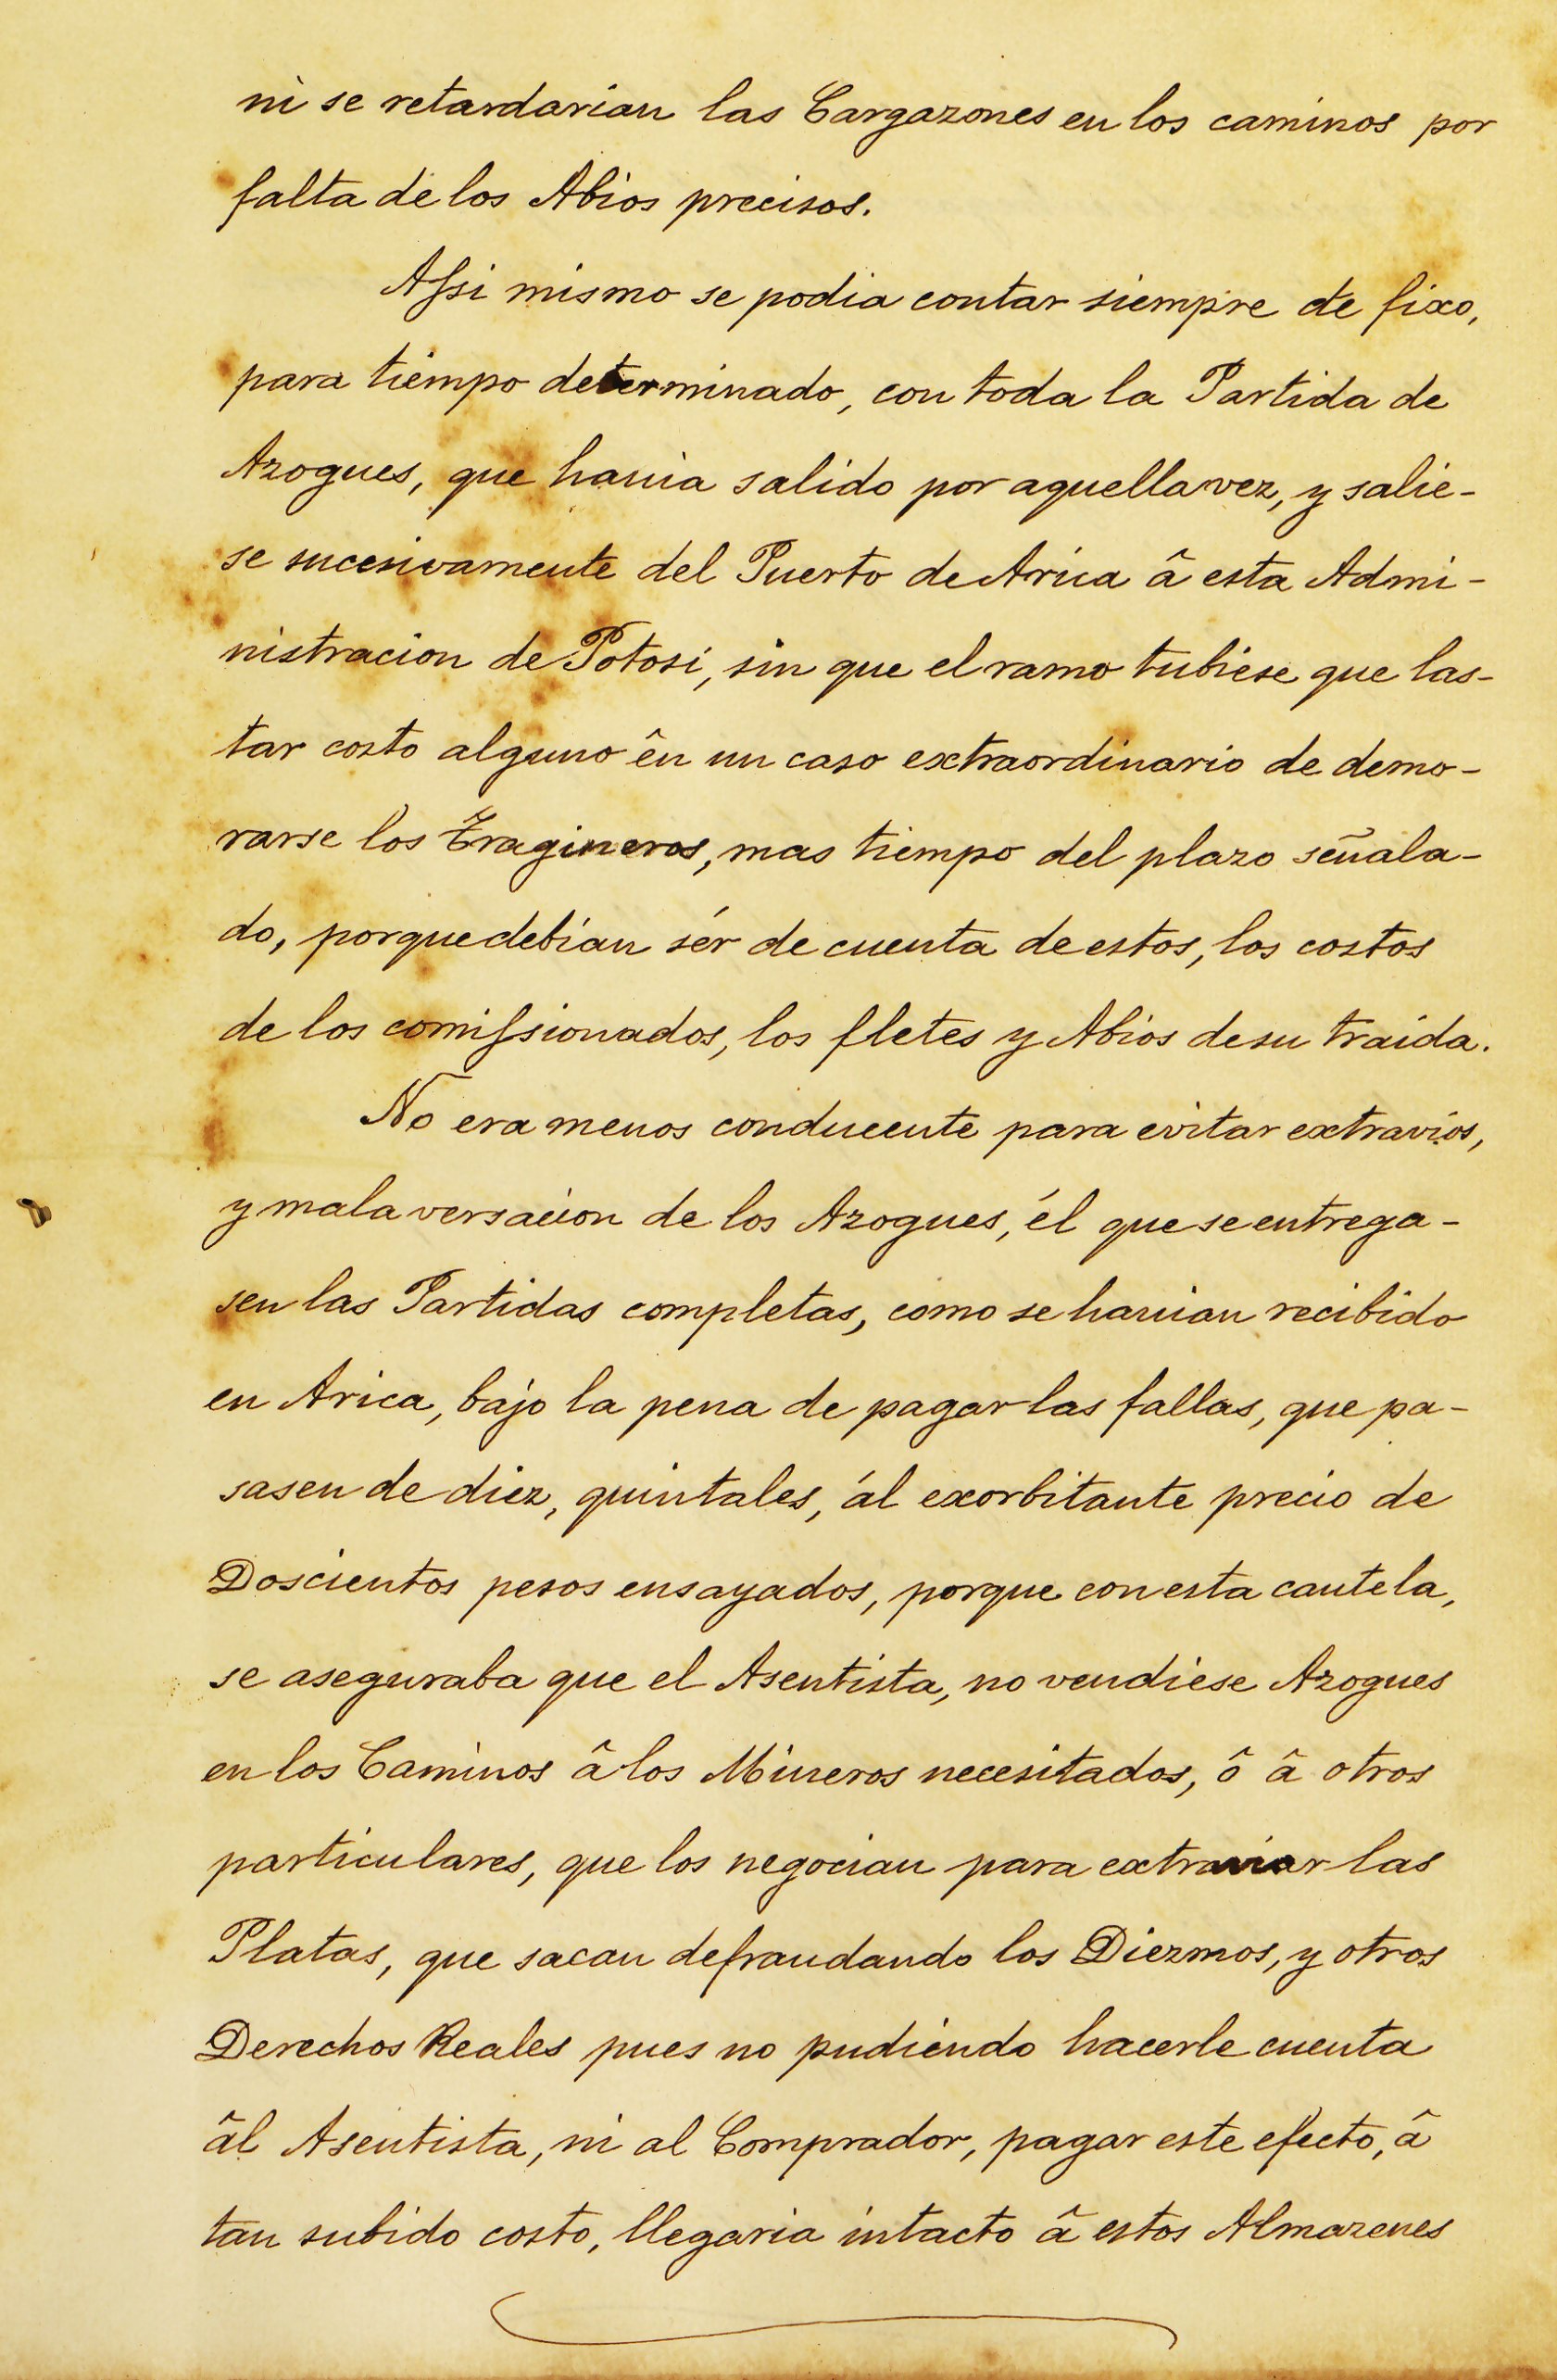 ni se retardarian las Cargazones en los caminos por
falta de los Abios precisos.
Assi mismo se podia contar siempre de fixo,
para tiempo determinado, con toda la Partida de
Azogues, que havia salido por aquella vez, y salie-
se sucesivamente del Puerto de Arica â esta Admi-
nistracion de Potosi, sin que el ramo tubiese que las-
tar costo alguno ên un caso extraordinario de demo-
rarse los Tragineros, mas tiempo del plazo señala-
do, porque debian sér de cuenta de estos, los costos
de los comissionados, los fletes y Abios de su traida.
No era menos conducente para evitar extravios,
y mala versacion de los Azogues, él que se entrega-
sen las Partidas completas, como se havian recibido
en Arica, bajo la pena de pagar las fallas, que pa-
sasen de diez, quintales, ál exorbitante precio de
Doscientos pesos ensayados, porque con esta cautela,
se aseguraba que el Asentista, no vendiese Azogues
en los Caminos â los Mineros necesitados, ô â otros
particulares, que los negocian para extraviar las
Platas, que sacan defraudando los Diezmos, y otros
Derechos Reales pues no pudiendo hacerle cuenta
âl Asentista, ni al Comprador, pagar este efecto, â
tan subido costo, llegaria intacto â estos Almazenes